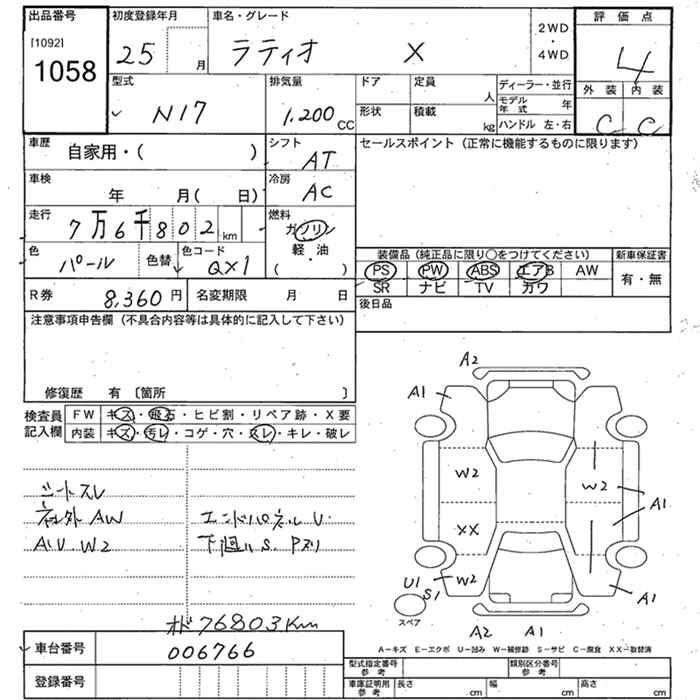 出品番号
[1092]
1058
初度登録年月
25 月
車名・グレード
ラティオ X
2WD
・
4WD
評 価 点
4
外 装 内 装
C C
型式
N17
排気量
1,200 CC
ドア 定員 人
形状 積載 kg
ディーラー・並行
モデル年式 年
ハンドル 左・右
車歴
自家用・( )
シフト
AT
セールスポイント (正常に機能するものに限ります)
車検
年 月( 日)
冷房
AC
走行
7万6千802 km
燃料
ガソリン
軽・油
( )
色
パール
色替
色コード
QX1
装備品 (純正品に限り○をつけてください)
新車保証書
PS PW ABS エアB AW
有・無
SR ナビ TV カワ
R券 8,360 円
名変期限 月 日
後日品
注意事項申告欄 (不具合内容等は具体的に記入して下さい)
修復歴 有 〔箇所 〕
検査員
記入欄
FW キズ・飛石・ヒビ割・リペア跡・X要
内装 キズ・汚レ・コゲ・穴・スレ・キレ・破レ
シートスレ
ネ社外AW
A1U.W2
エンドパネルU.
下廻りS.Pスリ
オド76803Km
A2
A1
W2
W2
XX
A1
U1
S1
W2
A1
スペア
A2 A1
A-キズ E-エクボ U-凹み W-補修跡 S-サビ C-腐食 XX-取替済
車台番号 006766
登録番号
型式指定番号 参考
類別区分番号 参考
車庫証明用 参考
長さ cm 幅 cm 高さ cm